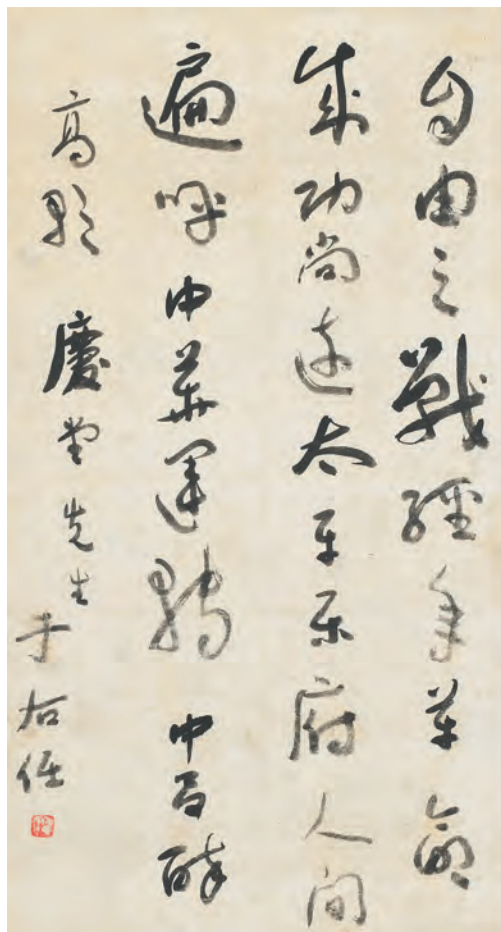 自由之戰經年革命
成功尚遠太平樂府人間
遍呼中華運轉 中呂醉
高歌 慶堂先生
于右任